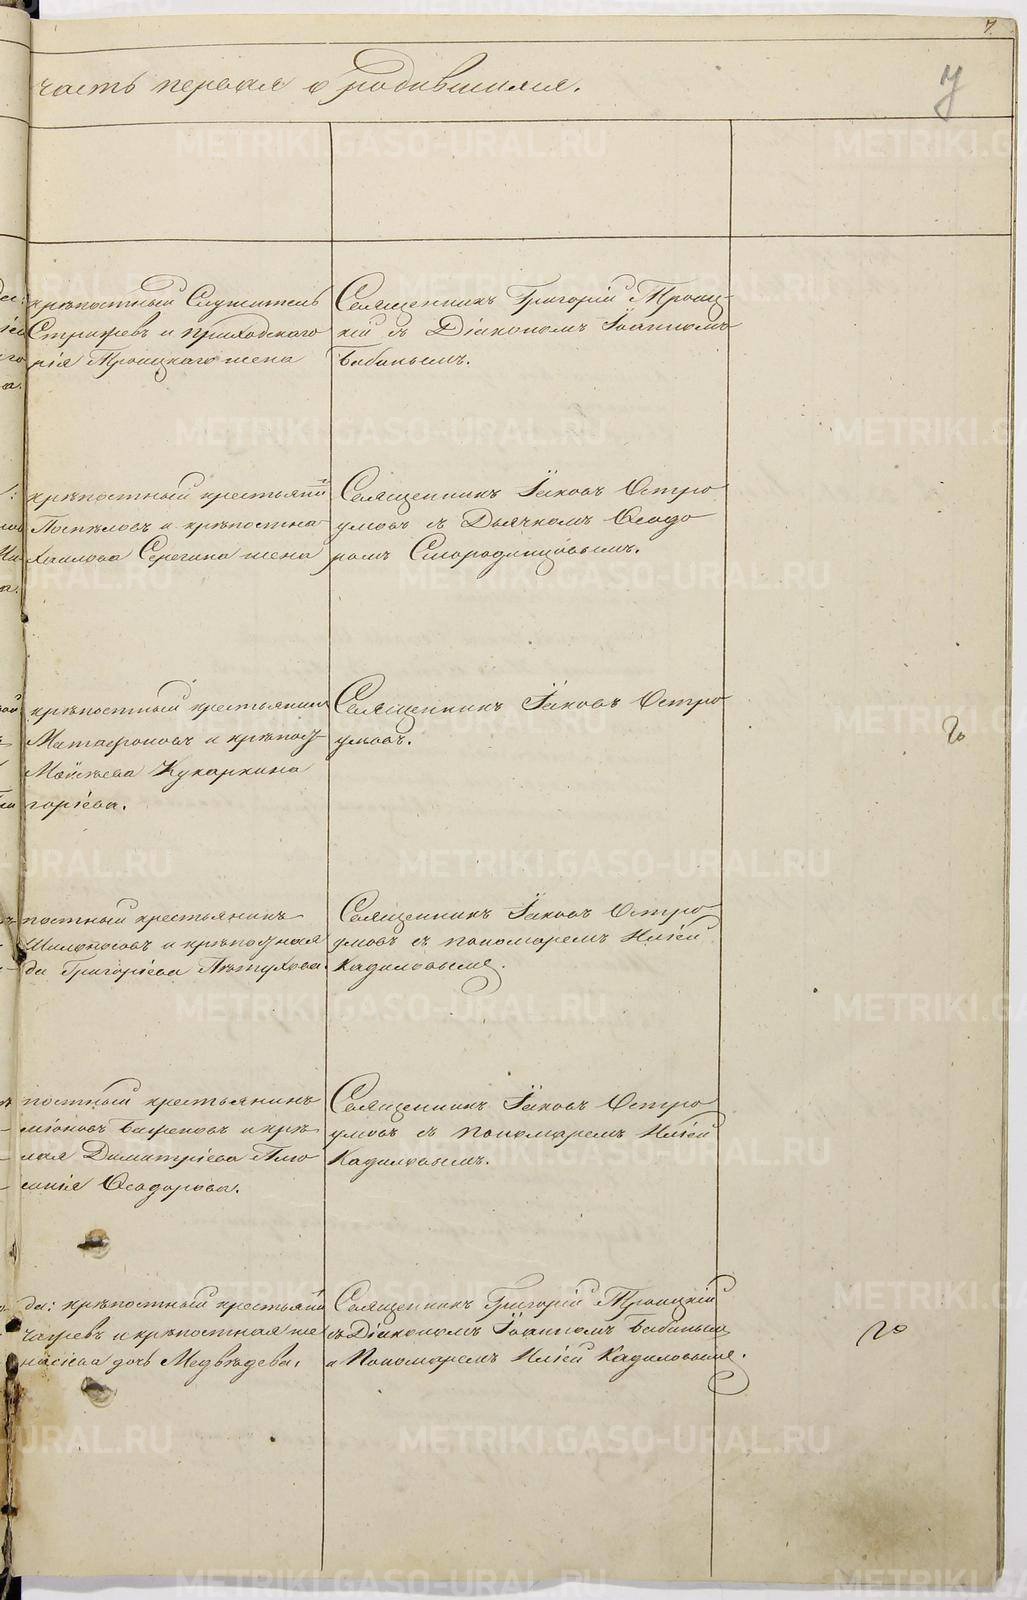 7
часть первая о родившихся.
у
крѣпостный Служитель
Стражевъ и приходскаго
рія Троицкаго жена
Священникъ Григорій Троиц-
кій съ Діакономъ Іоанномъ
Бабинымъ.
крѣпостный крестьянин
Поспѣловъ и крѣпостна
хаилова Серегина жена
Священникъ Іаковъ Остро
умовъ съ Дьячкомъ Ѳеодо
ромъ Смородинцовымъ.
крѣпостный крестьянинъ
Матафоновъ и крѣпост
Моисѣева Кукаркина
горіева.
Священникъ Іаковъ Остро
умовъ.
постный крестьянинъ
Шилоносовъ и крѣпостная
да Григоріева Пѣтухова.
Священникъ Іаковъ Остро
умовъ съ пономаремъ Иліей
Кадиловымъ.
постный крестьянинъ
міоновъ Баженовъ и крѣ
лая Димитріева
Ѳеодорова.
Священникъ Іаковъ Остро
умовъ съ пономаремъ Иліей
Кадиловымъ.
да: крѣпостный крестьянин
и крѣпостная же
насіева дочь Медвѣдева.
Священникъ Григорій Троицкій
съ Діакономъ Іоанномъ Бабинымъ
и Пономаремъ Иліей Кадиловымъ.